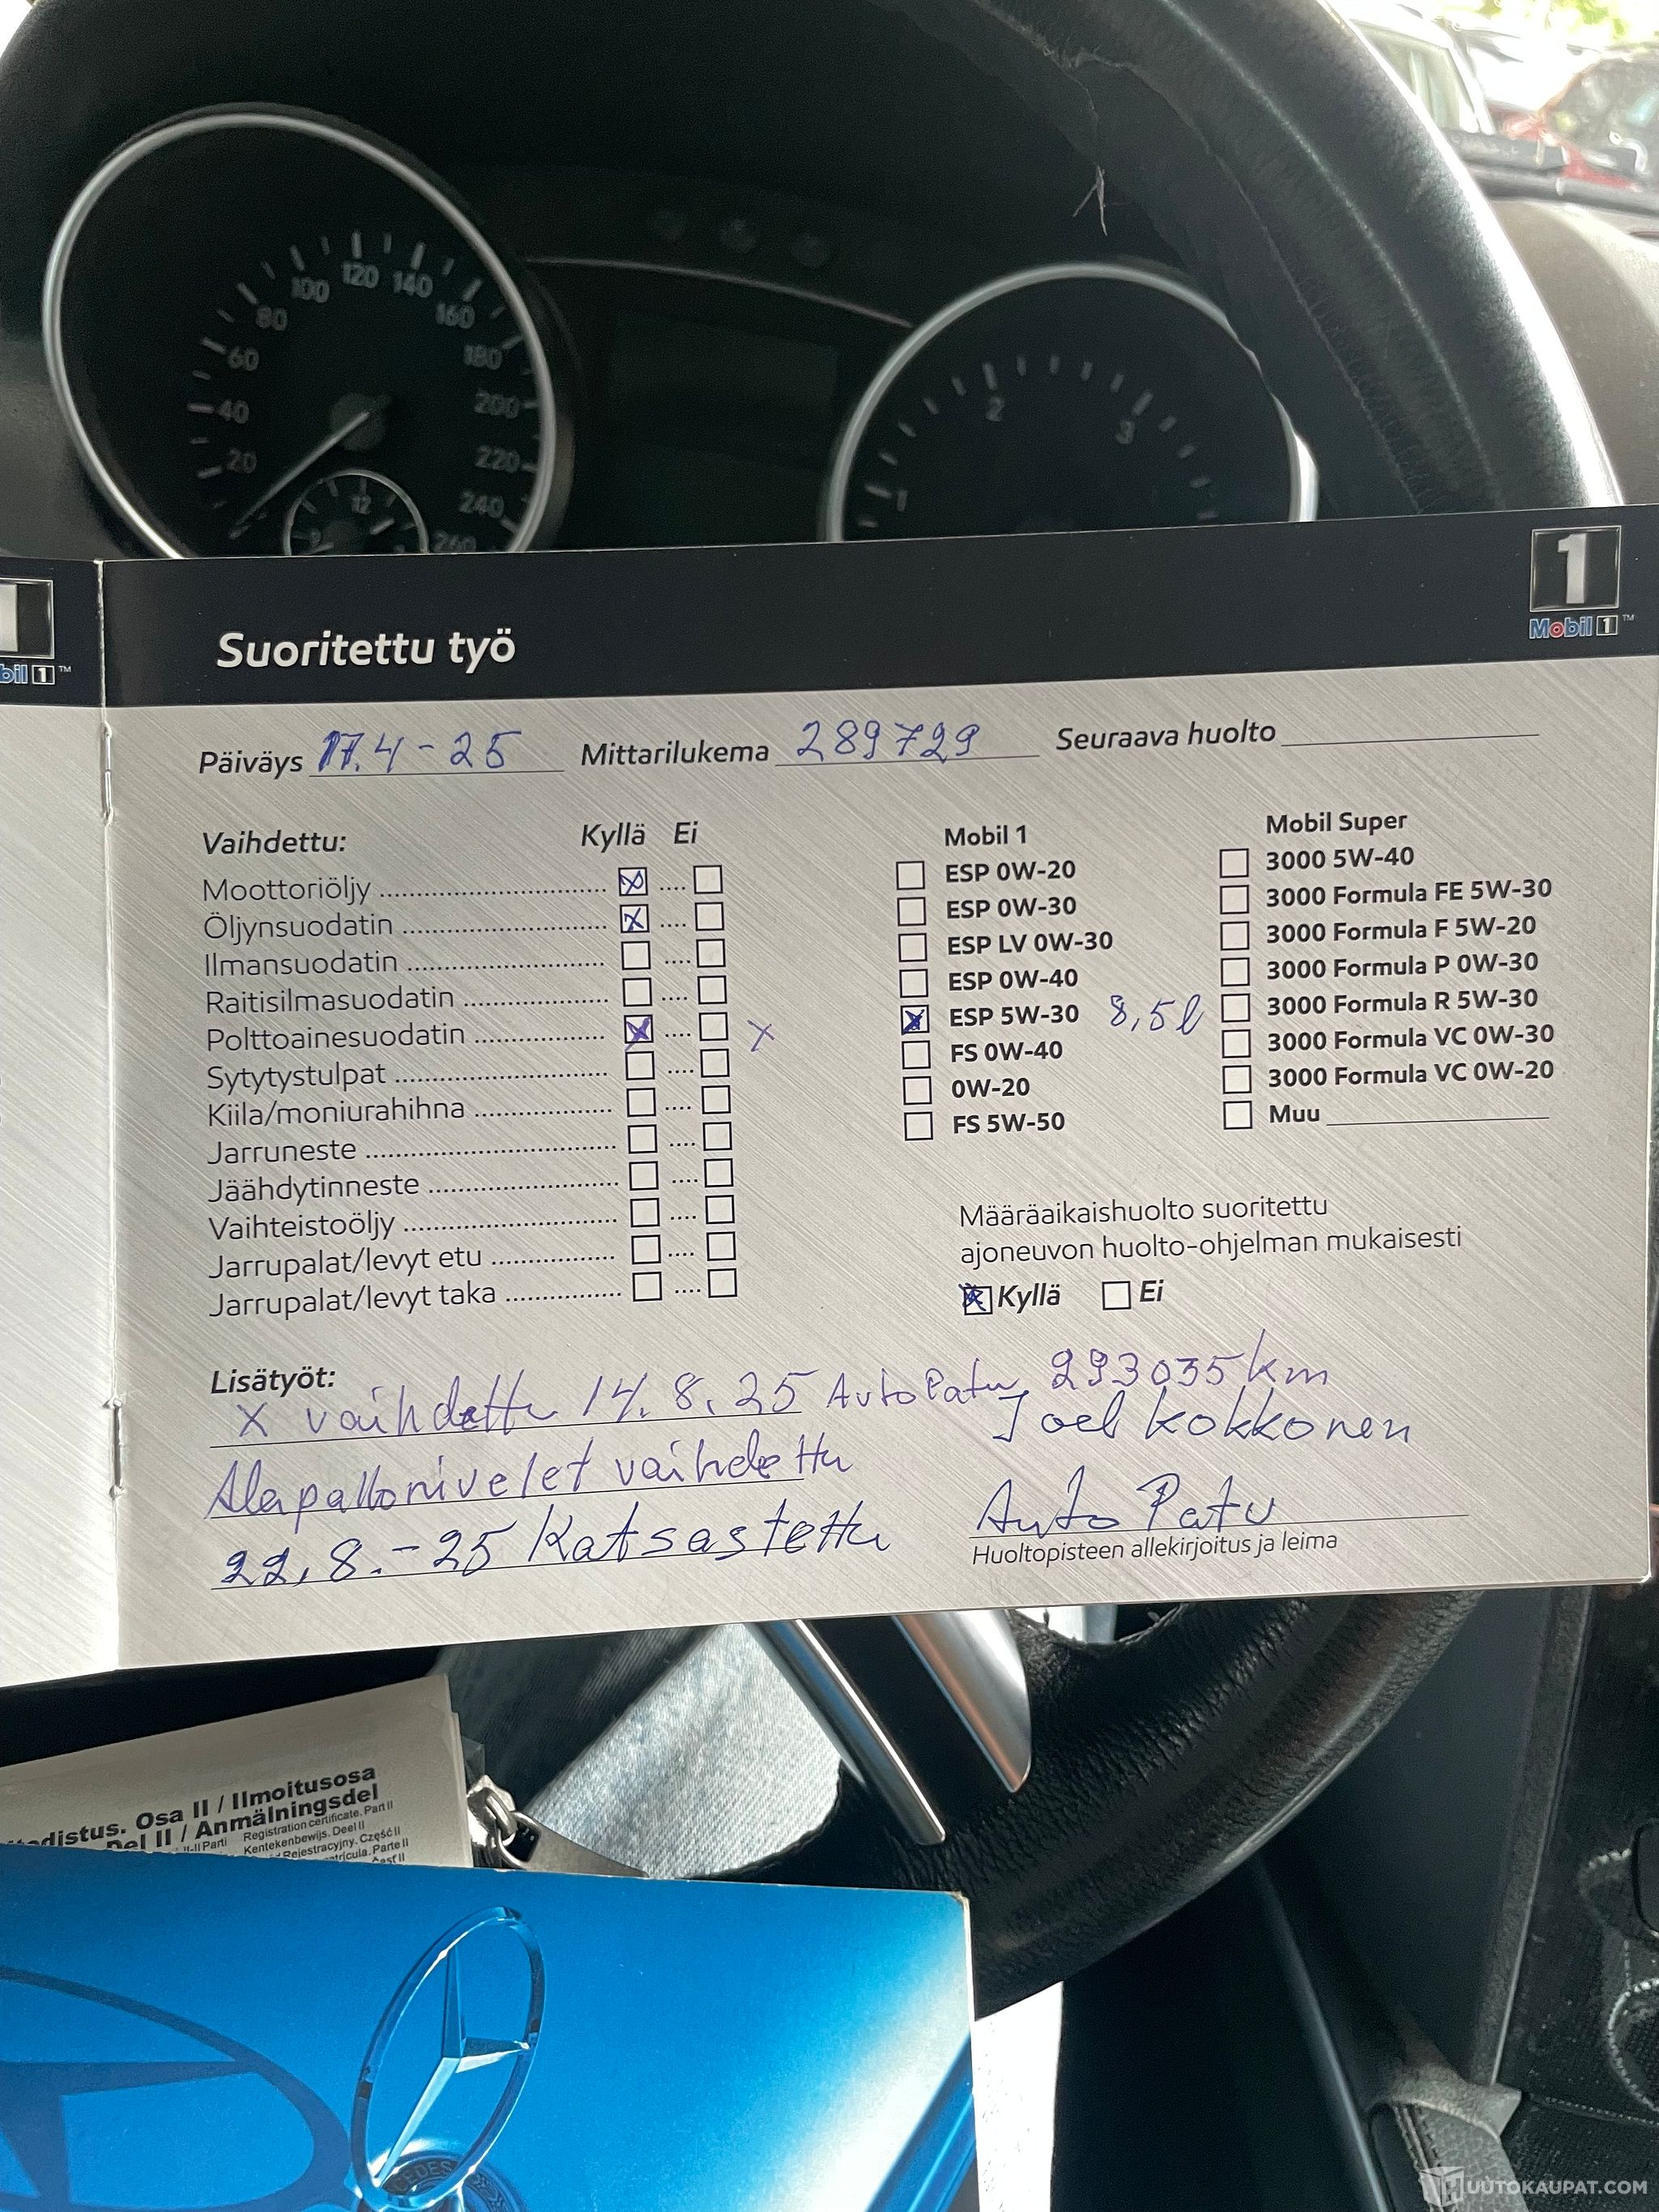 100 120 140
80 160
60 180
40 200
20 220
240
260
12
9
1 2 3
1
Mobil 1™
bil 1™
Suoritettu työ
Päiväys 17.4-25 Mittarilukema 289729 Seuraava huolto
Vaihdettu: Kyllä Ei
Moottoriöljy
Öljynsuodatin
Ilmansuodatin
Raitisilmasuodatin
Polttoainesuodatin X
Sytytystulpat
Kiila/moniurahihna
Jarruneste
Jäähdytinneste
Vaihteistoöljy
Jarrupalat/levyt etu
Jarrupalat/levyt taka
Mobil 1
ESP 0W-20
ESP 0W-30
ESP LV 0W-30
ESP 0W-40
ESP 5W-30 8,5l
FS 0W-40
0W-20
FS 5W-50
Mobil Super
3000 5W-40
3000 Formula FE 5W-30
3000 Formula F 5W-20
3000 Formula P 0W-30
3000 Formula R 5W-30
3000 Formula VC 0W-30
3000 Formula VC 0W-20
Muu
Määräaikaishuolto suoritettu
ajoneuvon huolto-ohjelman mukaisesti
Kyllä Ei
Lisätyöt:
X vaihdettu 14.8.25 AutoPatu 293035km
Joel Kokkonen
Alapallonivelet vaihdettu
22.8.-25 Katsastettu
Auto Patu
Huoltopisteen allekirjoitus ja leima
distus. Osa II / Ilmoitusosa
Del II / Anmälningsdel
Registration certificate. Part II
Kentekenbewijs. Deel II
Rejestracyjny. Część II
tricula. Parte II
Časť II
UUTOKAUPAT.COM